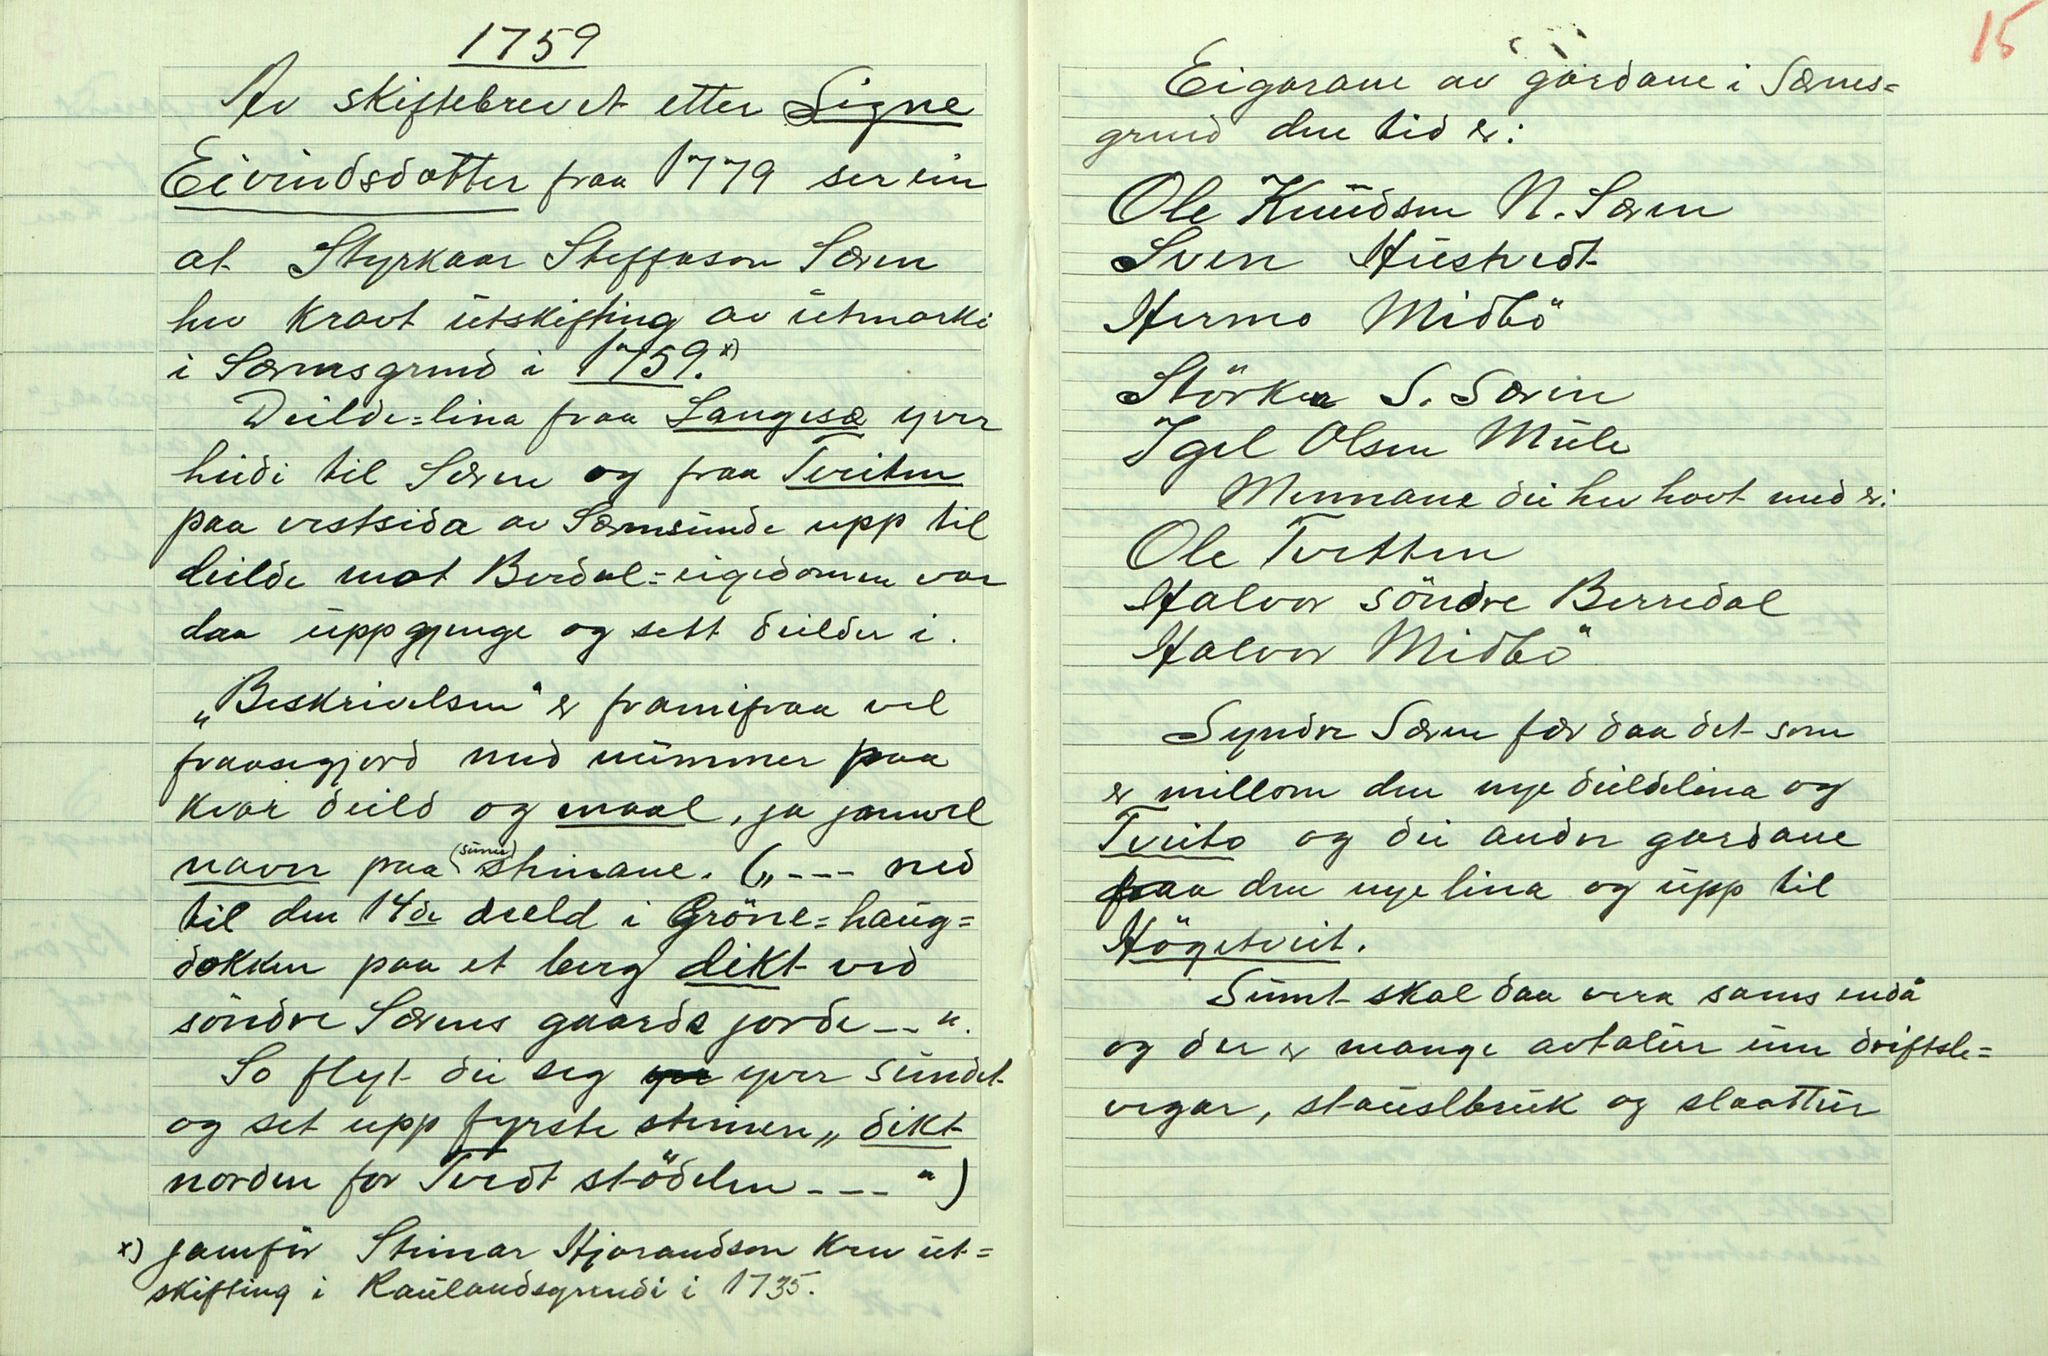 1759
Av skiftebrevet etter Signe
Eivindsdotter fraa 1779 ser ein
at Styrkaar Steffason Særen
hev kravt utskifting av utmarki
i Særensgrend i 1759.x)
Deilde=lina fraa Langesæ yver
heidi til Særen og fraa Tveiten
paa vestsida av Særensunde upp til
deilde mot Berdal=eigedomen var
daa uppgjenge og sett deilder i.
„Beskrivelsen" er framifraa vel
fraasegjord med nummer paa
kvar deild og maal, ja jamvel
navn paa (sume) steinane. („--- ned
til den 14de deeld i Gröne=haug=
dokken paa et berg dikt ved
söndre Særens gaards jorde --".
So flyt dei seg yver sundet
og set upp fyrste steinen „dikt
norden for Tvedt stödelen --- ")
x) jamför Steinar Hjorandson krev ut=
skifting i Raulandsgrendi i 1735.
15
Eigarane av gardane i Særens=
grend den tid er:
Ole Knudsen N. Særen
Sven Hustvedt
Hermo Midbö
Störker S. Særen
Igel Olsen Mule
Mennane dei hev havt med er:
Ole Tvetten
Halvor söndre Berredal
Halvor Midbö
Syndre Særen fær daa det som
er millom den nye deildelina og
Tveito og dei andre gardane
fraa den nye lina og upp til
Högetveit.
Sumt skal daa vera sams endå
og der er mange avtalur um driftsle=
vegar, stauslbruk og slaattur